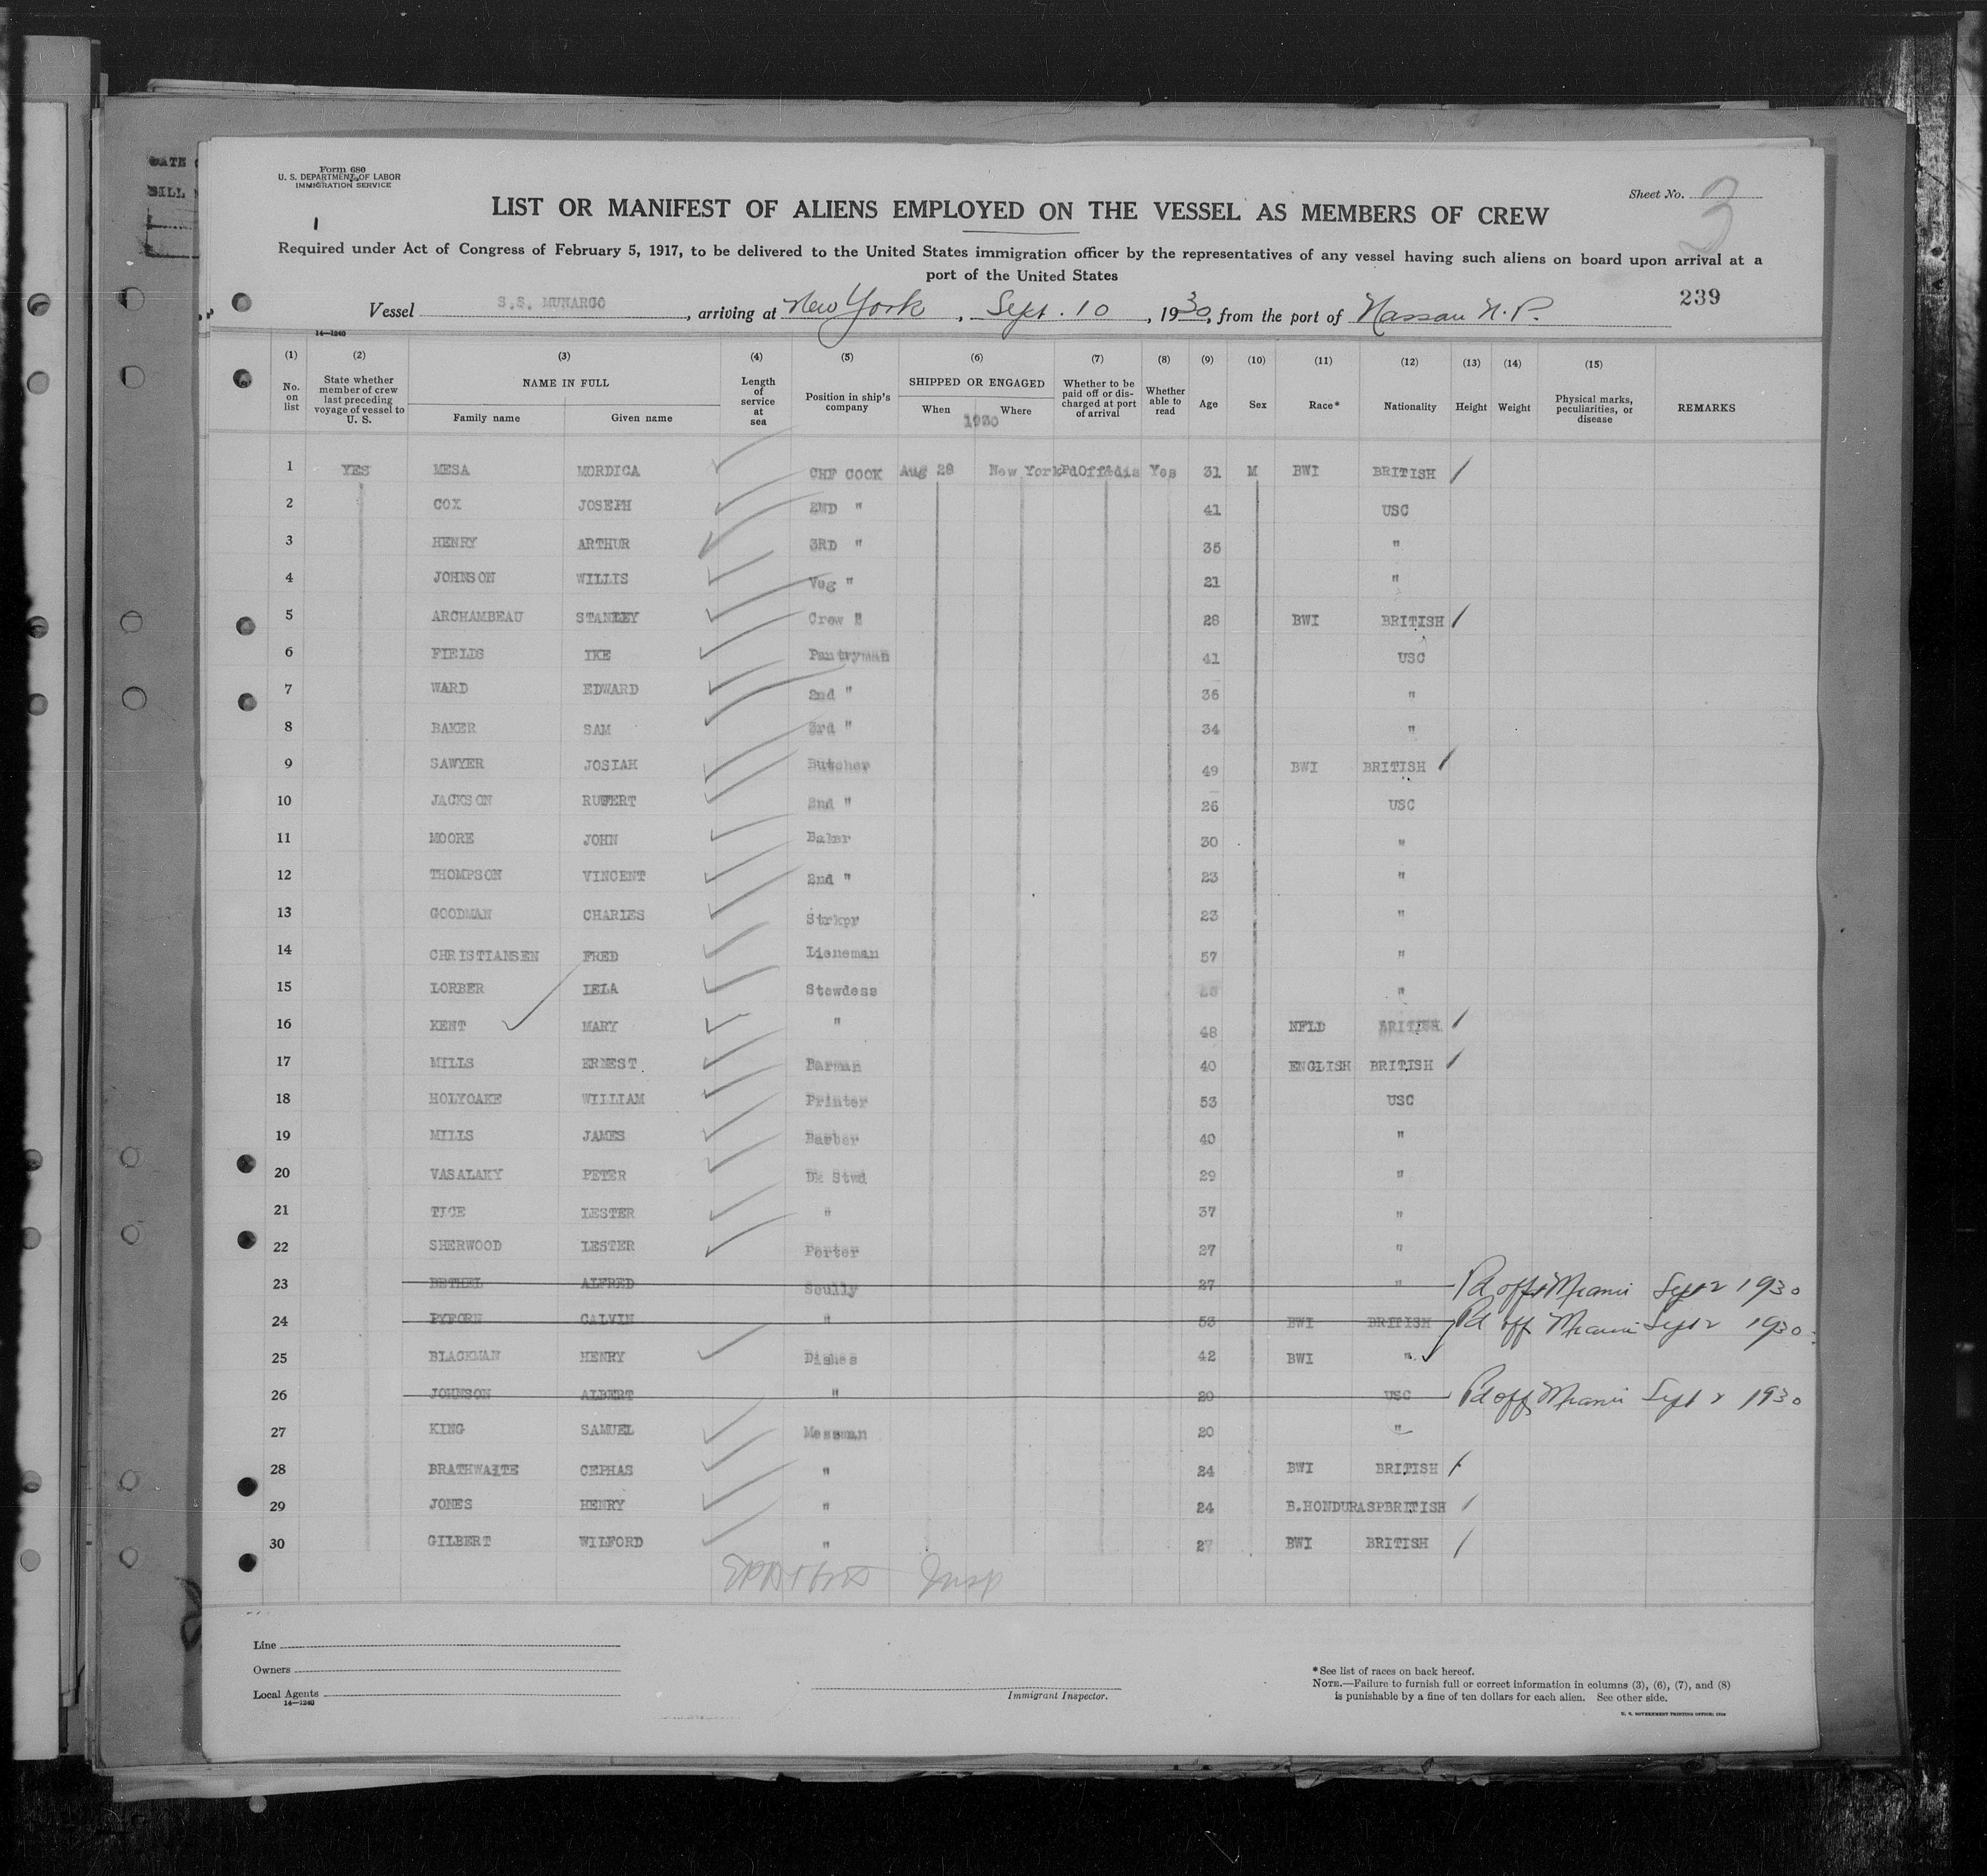 Form 680
U. S. DEPARTMENT OF LABOR
IMMIGRATION SERVICE
Sheet No. 3
LIST OR MANIFEST OF ALIENS EMPLOYED ON THE VESSEL AS MEMBERS OF CREW
Required under Act of Congress of February 5, 1917, to be delivered to the United States immigration officer by the representatives of any vessel having such aliens on board upon arrival at a
port of the United States
239
Vessel S.S. MUNARGO, arriving at New York, Sept. 10, 1930, from the port of Nassau N.P.
14—1240
(1) (2) (3) (4) (5) (6) (7) (8) (9) (10) (11) (12) (13) (14) (15)
No. on list State whether member of crew last preceding voyage of vessel to U. S. NAME IN FULL Family name Given name Length of service at sea Position in ship's company SHIPPED OR ENGAGED When Where 1930 Whether to be paid off or discharged at port of arrival Whether able to read Age Sex Race* Nationality Height Weight Physical marks, peculiarities, or disease REMARKS
1 YES MESA MORDICA CHF COOK Aug 28 New York PdOff&dis Yes 31 M BWI BRITISH
2 COX JOSEPH 2ND " 41 USC
3 HENRY ARTHUR 3RD " 35 "
4 JOHNSON WILLIS Veg " 21 "
5 ARCHAMBEAU STANLEY Crew " 28 BWI BRITISH
6 FIELDS IKE Pantryman 41 USC
7 WARD EDWARD 2nd " 36 "
8 BAKER SAM 3rd " 34 "
9 SAWYER JOSIAH Butcher 49 BWI BRITISH
10 JACKSON RUPERT 2nd " 26 USC
11 MOORE JOHN Baker 30 "
12 THOMPSON VINCENT 2nd " 23 "
13 GOODMAN CHARLES Strkpr 23 "
14 CHRISTIANSEN FRED Lieneman 57 "
15 LORBER LELA Stewdess "
16 KENT MARY " 48 NFLD BRITISH
17 MILLS ERNEST Barman 40 ENGLISH BRITISH
18 HOLYOAKE WILLIAM Printer 53 USC
19 MILLS JAMES Barber 40 "
20 VASALAKY PETER Dk Stwd 29 "
21 TICE LESTER " 37 "
22 SHERWOOD LESTER Porter 27 "
23 BETHEL ALFRED Scully 27 " Pd off Miami Sept 2 1930
24 PYFORM CALVIN " 53 BWI BRITISH Pd off Miami Sept 2 1930
25 BLACKMAN HENRY Dishes 42 BWI "
26 JOHNSON ALBERT " 20 USC Pd off Miami Sept 2 1930
27 KING SAMUEL Messman 20 "
28 BRATHWAITE CEPHAS " 24 BWI BRITISH
29 JONES HENRY " 24 B.HONDURASPBRITISH
30 GILBERT WILFORD " 27 BWI BRITISH
Insp
Line
Owners
Local Agents
14—1240
Immigrant Inspector.
*See list of races on back hereof.
NOTE.—Failure to furnish full or correct information in columns (3), (6), (7), and (8)
is punishable by a fine of ten dollars for each alien. See other side.